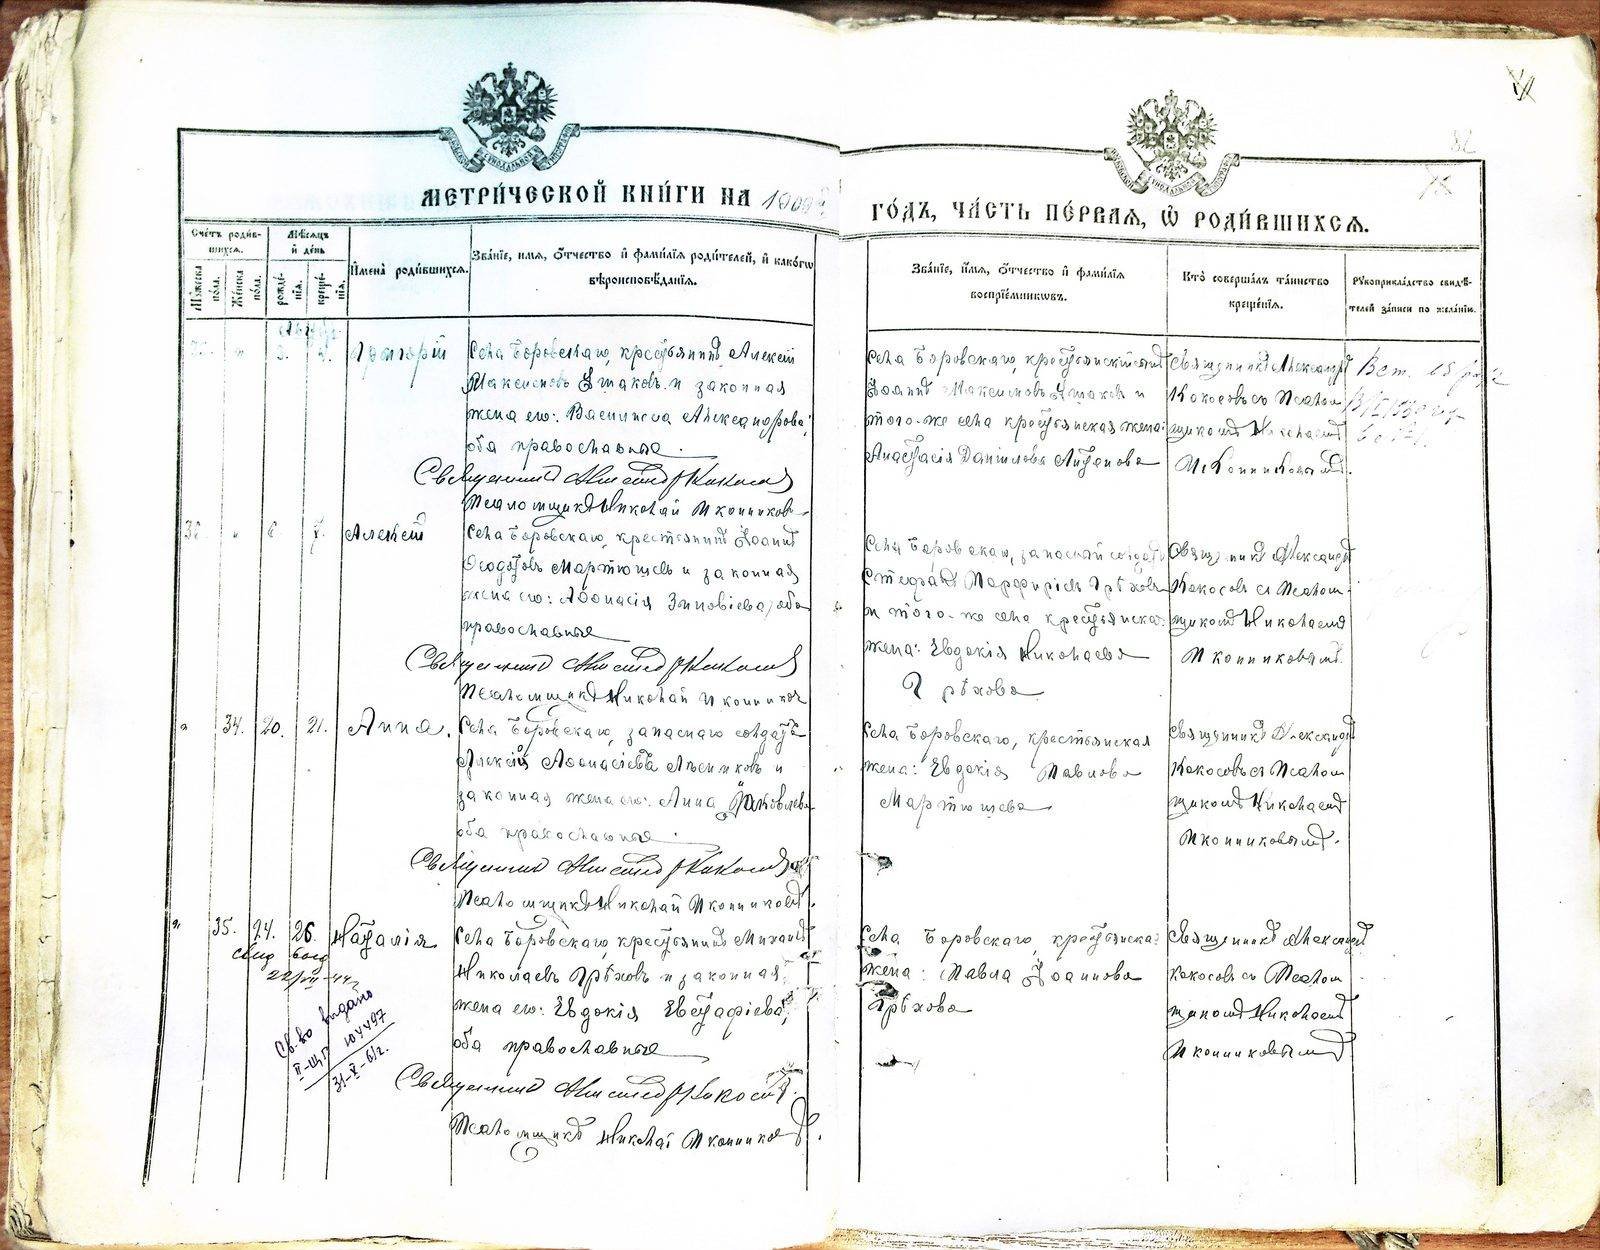 МЕТРИ́ЧЕСКОЙ КНИ́ГИ НА
ГО́ДЪ, ЧА́СТЬ ПЕ́РВАЯ, Ѡ РОДИ́ВШИХСЯ.
82
Сче́тъ роди́в-
шихся.
Мѣ́сяцъ
и҆ де́нь
И҆мена̀ роди́вшихся.
Зва́нїе, и҆́мя, ѻ҆́тчество и҆ фами́лїя роди́телей, и҆ како́гѡ
вѣроисповѣ́данїя.
Зва́нїе, и҆́мя, ѻ҆́тчество и҆ фами́лїя
воспрїе́мникѡвъ.
Кто̀ соверша́лъ та́инство
креще́нїя.
Рꙋкоприкла́дство свидѣ́-
телей за́писи по жела́нїю.
Мꙋ́жеска
по́ла.
Же́нска
по́ла.
рожде́-
нїя.
креще́-
нїя.
3.
Григорій
Села Боровскаго, крестьянинъ Алексѣй
Максимовъ Ушаковъ и законная
жена его: Василисса Александрова;
оба православные.
Священникъ Александръ Кокосовъ
Псаломщикъ Николай Иконниковъ
Села Боровскаго, крестьянскій сынъ
Іоаннъ Максимовъ Ушаковъ и
того-же села крестьянская жена:
Анастасія Данилова
Священникъ Александръ
Кокосовъ съ Псалом-
щикомъ Николаемъ
Иконниковымъ.
6. 7.
Алексѣй
Села Боровскаго, крестьянинъ Іоаннъ
Ѳеодотовъ Мартюшевъ и законная
жена его: Аѳонасія Зиновіева, оба
православные
Священникъ Александръ Кокосовъ
Псаломщикъ Николай Иконниковъ
Села Боровскаго, запасный солдатъ
Стефанъ Порфиріевъ Грѣховъ
и того-же села крестьянская
жена: Евдокія Николаева
Грѣхова
Священникъ Александръ
Кокосовъ съ Псалом-
щикомъ Николаемъ
Иконниковымъ.
" 34. 20. 21.
Анна.
Села Боровскаго, запаснаго солдатъ
Алексій Аѳонасіевъ Лѣсниковъ и
законная жена его: Анна Іаковлева
оба православные.
Священникъ Александръ Кокосовъ
Псаломщикъ Николай Иконниковъ.
Села Боровскаго, крестьянская
жена: Евдокія Павлова
Мартюшева
Священникъ Александръ
Кокосовъ съ Псалом-
щикомъ Николаемъ
Иконниковымъ.
" 35. 24. 26.
Наталія
Села Боровскаго, крестьянинъ Михаилъ
Николаевъ Грѣховъ и законная
жена его: Евдокія Евстафіева,
оба православные
Священникъ Александръ Кокосовъ.
Псаломщикъ Николай Иконниковъ.
Села Боровскаго, крестьянска
жена: Павла Іоаннова
Грѣхова
Священникъ Александръ
Кокосовъ съ Псалом-
щикомъ Николаемъ
Иконниковымъ
Св-во выдано
II-ЩЛ 104497
31-X-61г.